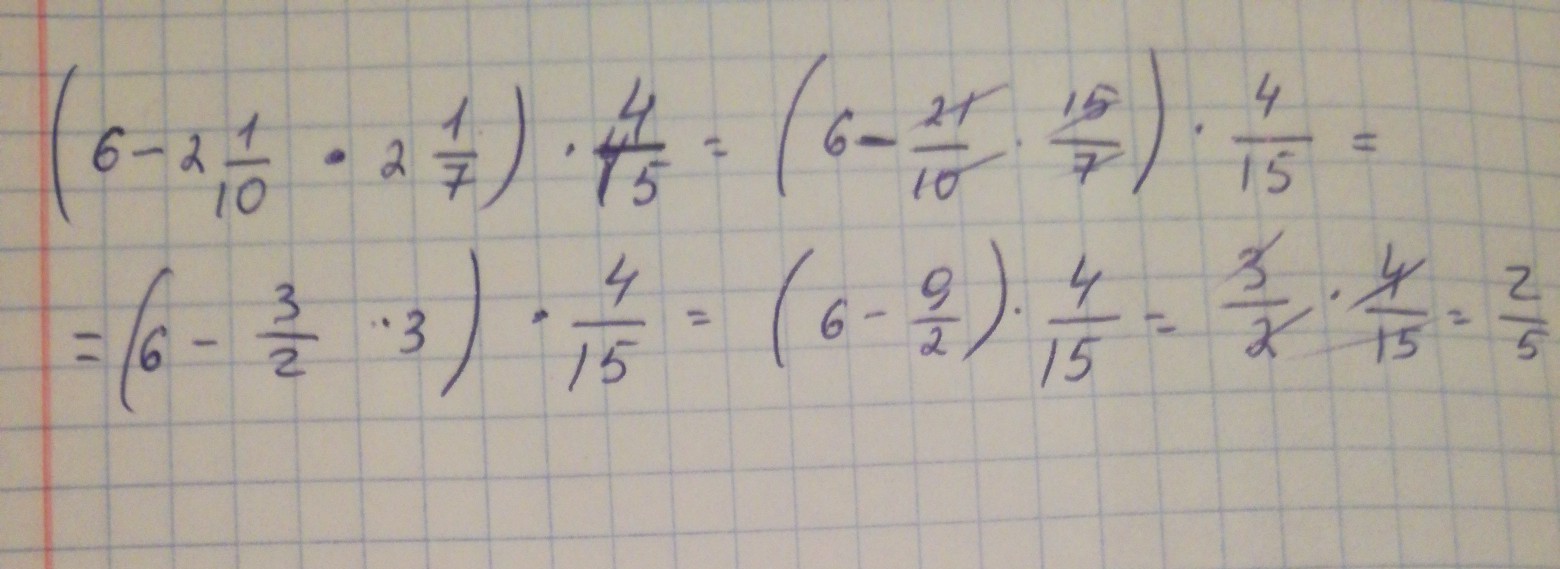 (6 - 2 1/10 · 2 1/7) · 4/15 = (6 - 21/10 · 15/7) · 4/15 =
= (6 - 3/2 · 3) · 4/15 = (6 - 9/2) · 4/15 = 3/2 · 4/15 = 2/5